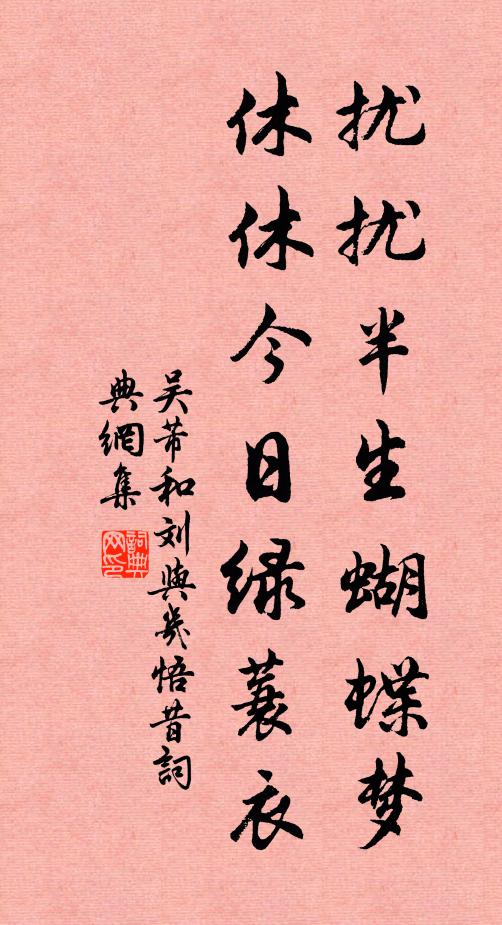 扰扰半生蝴蝶梦
休休今日绿蓑衣
吴芾和刘與幾悟昔詞
典網集
詞典网印